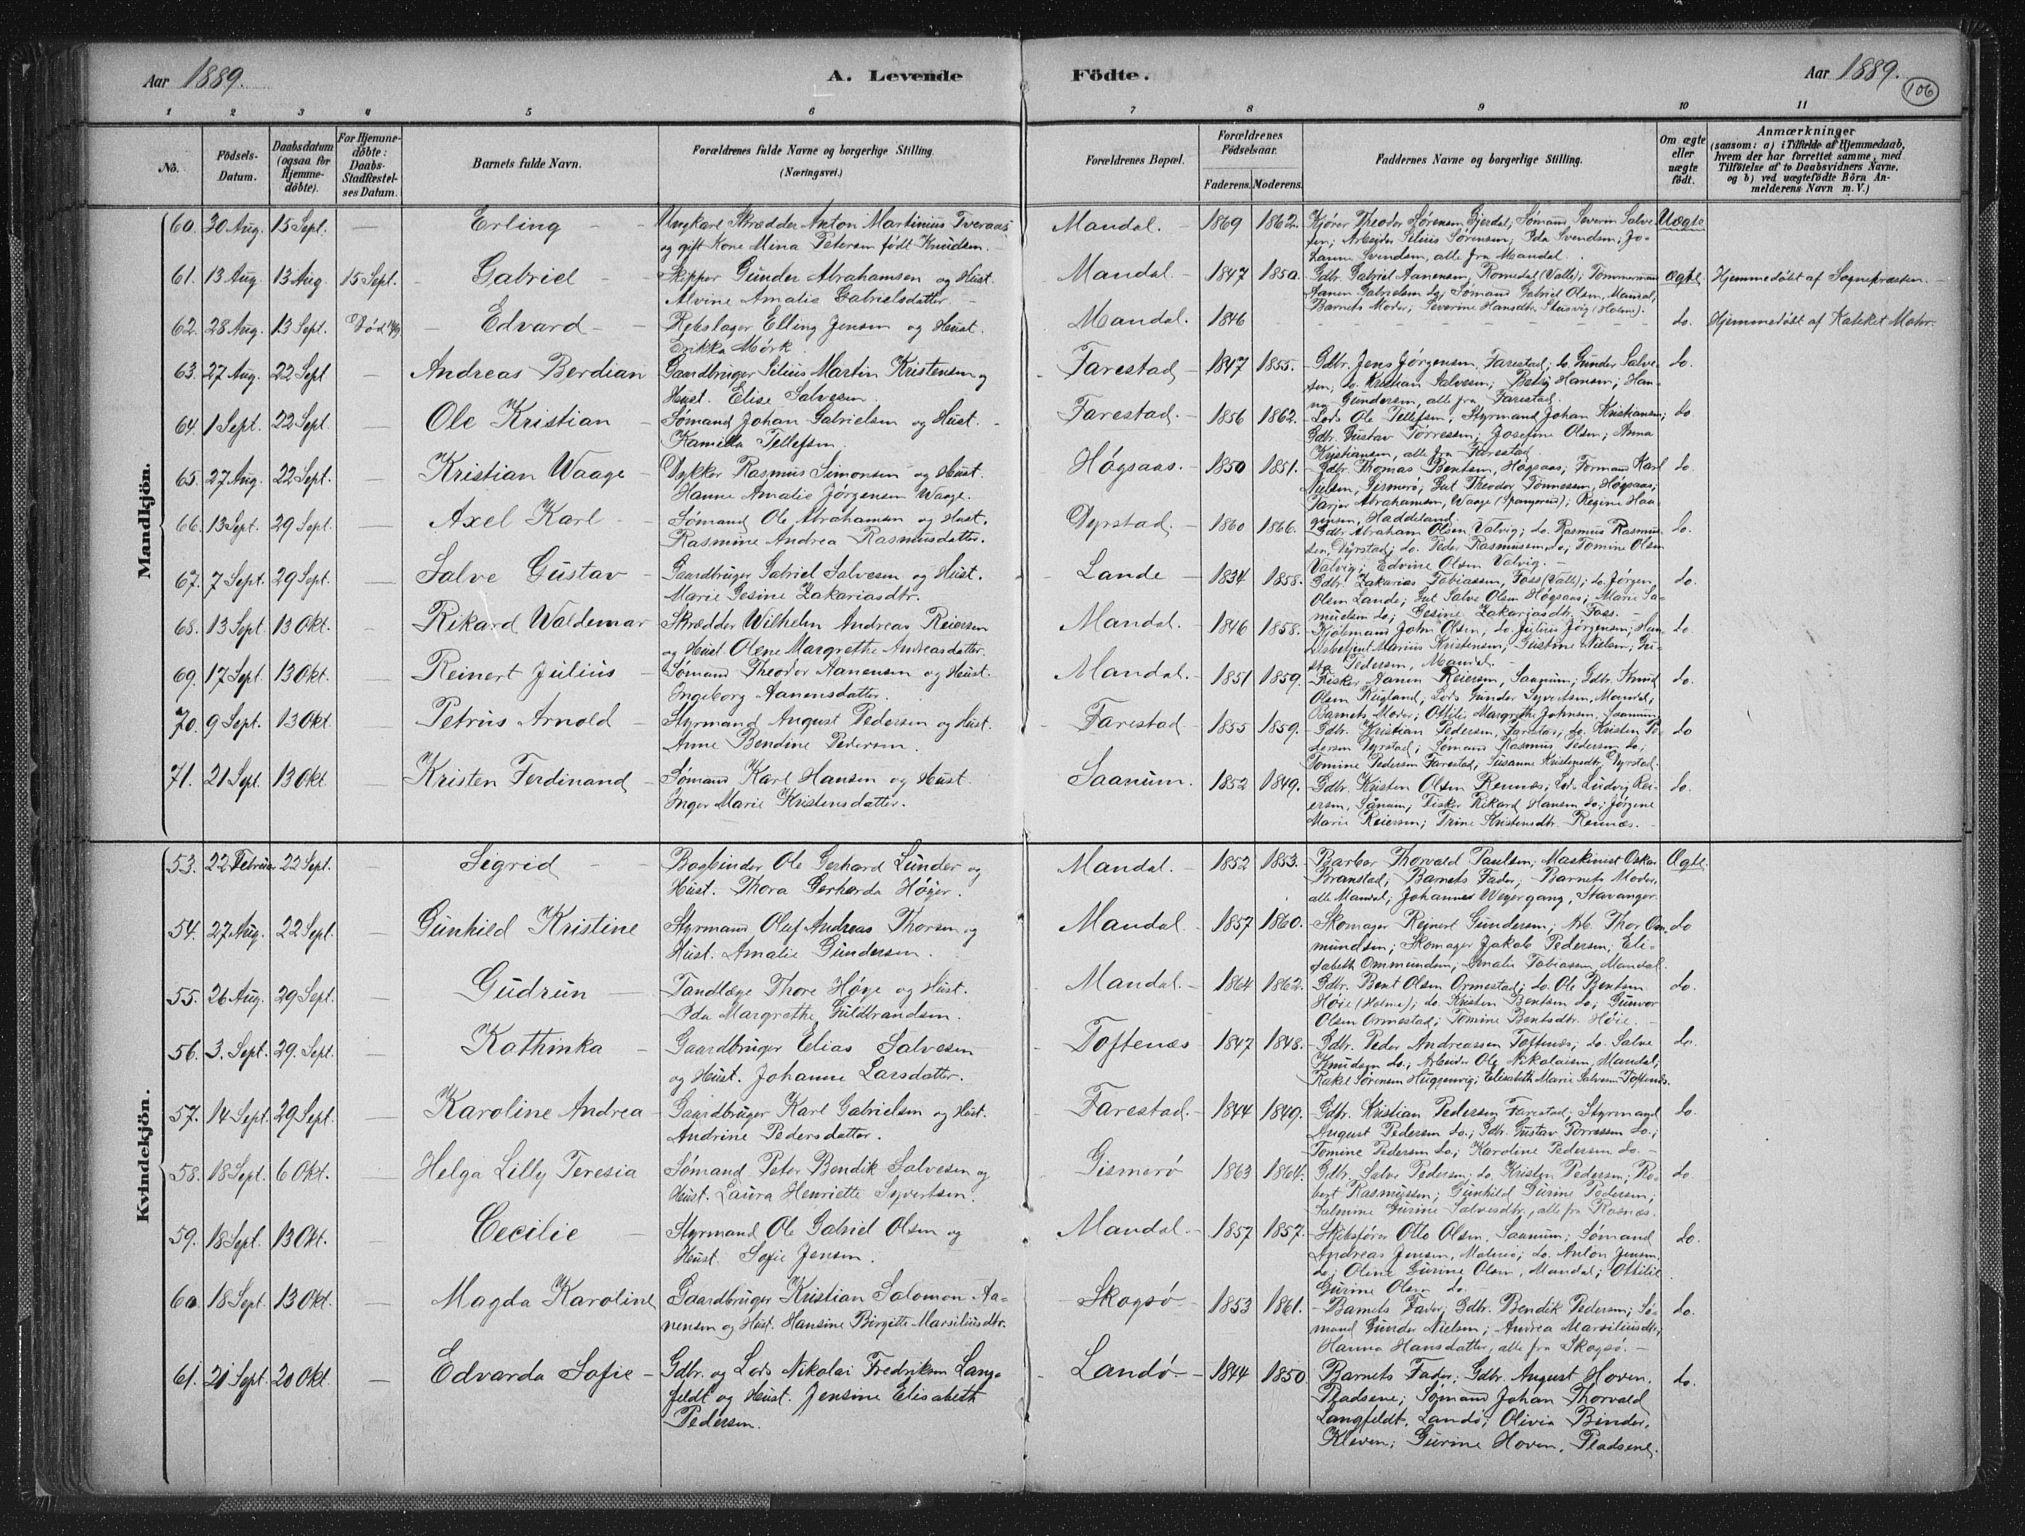 Aar 1889. A. Levende Födte. Aar 1889.
106
1 2 3 4 5 6 7 8 9 10 11
No.
Födsels-Datum.
Daabsdatum (ogsaa for Hjemme-döbte).
For Hjemme-döbte: Daabs-Stadfæstel-ses Datum.
Barnets fulde Navn.
Forældrenes fulde Navne og borgerlige Stilling. (Næringsvei.)
Forældrenes Bopæl.
Forældrenes Födselsaar. Faderens. Moderens.
Faddernes Navne og borgerlige Stilling.
Om ægte eller uægte födt.
Anmærkninger (saasom: a) i Tilfælde af Hjemmedaab, hvem der har forrettet samme, med Tilföielse af to Daabsvidners Navne, og b) ved uægtefödte Börn An-melderens Navn m. V.)
Mandkjön.
60. 30 Aug. 15 Sept. — Erling — Ungkarl Skrædder Anton Martinius Tveraas Mandal. 1869 1862. Kjører Theodor Sørensen Gjerdal, Sømand Severin Salve- Uægte
og gift Kone Mina Petersen født Knudsen. sen; Arbeider Silius Sørensen; Ida Svendsen; Jo-
hanne Svendsen, alle fra Mandal.
61. 13 Aug 13 Aug 15 Sept. Gabriel Skipper Gunder Abrahamsen og Hust. Mandal. 1847 1850. Gdbr. Gabriel Aanensen, Romedal (Valle); Tømmermand Ægte Hjemmedøbt af Sognepræsten.
Alvine Amalie Gabrielsdatter. Aanen Gabrielsen do; Sømand Gabriel Olsen, Mandal;
Barnets Moder; Severine Hansdtr. (Holme).
62. 28 Aug. 13 Sept. Død Edvard Rebslager Elling Jensen og Hust. Mandal. 1846 do. Hjemmedøbt af Kateket Mohr.
Erikka Mørk.
63. 27 Aug. 22 Sept — Andreas Berdian Gaardbruger Silius Martin Kristensen og Farestad. 1847 1855. Gdbr. Jens Jørgensen, Farestad; do. Gunder Salve- do.
Hust. Elise Salvesen. sen; do. Kristian Salvesen; Betsy Hansen; Han-
na Gundersen, alle fra Farestad.
64. 1 Sept. 22 Sept. — Ole Kristian Sømand Johan Gabrielsen og Hust. Farestad. 1856 1862. Lods Ole Tellefsen, Styrmand Johan Kristiansen; do
Kamilla Tellefsen. Gdbr. Gustav Torressen; Josefine Olsen; Anna
Kristiansen, alle fra Farestad
65. 27 Aug. 22 Sept. — Kristian Waage Dykker Rasmus Simonsen og Hust. Høgsaas. 1850 1851. Gdbr. Thomas Bentsen, Høgsaas; Formand Karl do.
Hanne Amalie Jørgensen Waage. Nielsen, Gismerø; Gut Theodor Tønnessen, Høgsaas;
Tarjer Abrahamsen, Waage (Spangereid); Regine Haa-
gensen, Haddeland.
66. 13 Sept. 29 Sept. — Axel Karl Sømand Ole Abrahamsen og Hust. Dyrstad. 1860 1866. Gdbr. Abraham Olsen Valvig; do. Rasmus Rasmus- do.
Rasmine Andrea Rasmusdatter. sen, Dyrstad; do. Peder Rasmussen do; Tomine Olsen
Valvig; Edvine Olsen Valvig.
67. 7 Sept. 29 Sept. — Salve Gustav Gaardbruger Gabriel Salvesen og Hust. Lande 1834 1858. Gdbr. Zakarias Tobiassen, Foss (Valle); do. Jørgen do.
Marie Gesine Zakariasdtr. Olsen Lande; Gut Salve Olsen Høgsaas; Marie Sa-
muelsen do; Gesine Zakariasdtr. Foss.
68. 13 Sept. 13 Okt. — Rikard Waldemar Skrædder Wilhelm Andreas Reiersen Mandal. 1846 1858. Kjøbmand John Olsen, do. Julius Jørgensen; Han- do.
og Hust. Olene Margrethe Andreasdatter. delsbetjent Marius Kristensen; Gustine Nielsen;
Pedersen, Mandal.
69. 17 Sept. 13 Okt. — Reinert Julius Sømand Theodor Aanensen og Hust. Mandal. 1851 1859. Fisker Aanen Reiersen, Saanum; Gdbr. Knud do.
Ingeborg Aanensdatter. Olsen Rugland; Lods Gunder Syvertsen, Mandal;
Barnets Moder; Ottilie Margrethe Johnsen, Saanum.
70. 9 Sept. 13 Okt — Petrus Arnold Styrmand August Pedersen og Hust. Farestad 1855 1859. Gdbr. Kristian Pedersen, Farestad; do. Kristen Pe- do
Anne Bendine Pedersen. dersen Dyrstad; Sømand Rasmus Pedersen do;
Tomine Pedersen Farestad; Susanne Kristensdtr. Dyrstad.
71. 21 Sept. 13 Okt — Kristen Ferdinand Sømand Karl Hansen og Hust Saanum. 1852 1849. Gdbr. Kristen Olsen Rennes; Lods Ludvig Rei- do.
Inger Marie Kristensdatter. ersen, Sånum; Fisker Rikard Hansen do; Jørgene
Marie Reiersen; Trine Kristensdtr. Rennes.
Kvindekjön.
53. 22 Februar 22 Sept. — Sigrid — Bogbinder Ole Gerhard Lunder og Mandal. 1852 1853. Barber Thorvald Paulsen; Maskinist Oskar Ægte
Hust. Thora Gerharda Høyer. Branstad; Barnets Fader; Barnets Moder,
alle Mandal; Johannes Weyergang, Stavanger.
54. 27 Aug. 22 Sept. — Gunhild Kristine Styrmand Oluf Andreas Thorsen og Mandal. 1857 1860. Skomager Reinert Gundersen; Arb. Thor Om- do
Hust. Amalie Gundersen. mundsen; Skomager Jakob Pedersen; Eli-
sabeth Ommundsen, Amalie Tobiassen, Mandal.
55. 26 Aug. 29 Sept. — Gudrun Tandlæge Thore Høye og Hust. Mandal. 1864 1862. Gdbr. Bent Olsen Ormestad; do. Ole Bentsen do.
Ida Margrethe Guldbrandsen. Høie (Holme); do. Kristen Bentsen do; Gunvor
Olsen Ormestad; Tomine Bentsdtr. Høie.
56. 3. Sept. 29. Sept. — Kathinka Gaardbruger Elias Salvesen Toftenæs 1847 1848. Gdbr. Peder Andreassen Toftenæs; do. Salve do.
og Hust. Johanne Larsdatter. Knudsen do.; Arbeider Ole Nikolaisen, Mandal;
Rakel Sørensen; Elisabeth Marie Salvesen Toftenæs
57. 14 Sept. 29 Sept. — Karoline Andrea Gaardbruger Karl Gabrielsen og Hust. Farestad. 1844 1849. Gdbr. Kristian Pedersen Farestad; Styrmand do.
Andrine Pedersdatter. August Pedersen do.; Gdbr. Gustav Torressen do.;
Tomine Pedersen do; Karoline Pedersen do.
58. 18 Sept. 6 Okt. — Helga Lilly Teresia Sømand Peter Bendik Salvesen og Gismerø 1863 1864. Gdbr. Salve Pedersen; do. Kristen Pedersen; Ro- do
Hust. Laura Henriette Syvertsen. bert Rasmussen; Gunhild Gurine Pedersen;
Salmine Gurine Salvesdtr., alle fra Rosnæs.
59. 18 Sept. 13 Okt. — Cecilie Styrmand Ole Gabriel Olsen og Mandal. 1857 1857. Skibsfører Otto Olsen, Saanum; Sømand do.
Hust. Sofie Jensen. Andreas Jensen, Malmø; do. Anton Jensen
do; Oline Gurine Olsen, Mandal; Ottilie
Gurine Olsen do.
60. 18 Sept. 13 Okt. — Magda Karoline Gaardbruger Kristian Salomon Aa- Skogsø 1853 1861. Barnets Fader; Gdbr. Bendik Pedersen; Sø- do.
nensen og Hust. Hansine Birgitte Marsiliusdtr. mand Gunder Nielsen; Andrea Marsiliusdtr;
Hanna Hansdatter, alle fra Skogsø.
61. 21 Sept. 20 Okt. — Edvarda Sofie Gdbr. og Lods Nikolai Fredriksen Lang- Landø 1844 1850 Barnets Fader, Gdbr. August Hoven, do.
feldt og Hust. Jensine Elisabeth Pladsene; Sømand Johan Thorvald
Pedersen. Langfeldt, Landø; Olivia Binder,
Kleven; Gurine Hoven, Pladsene.